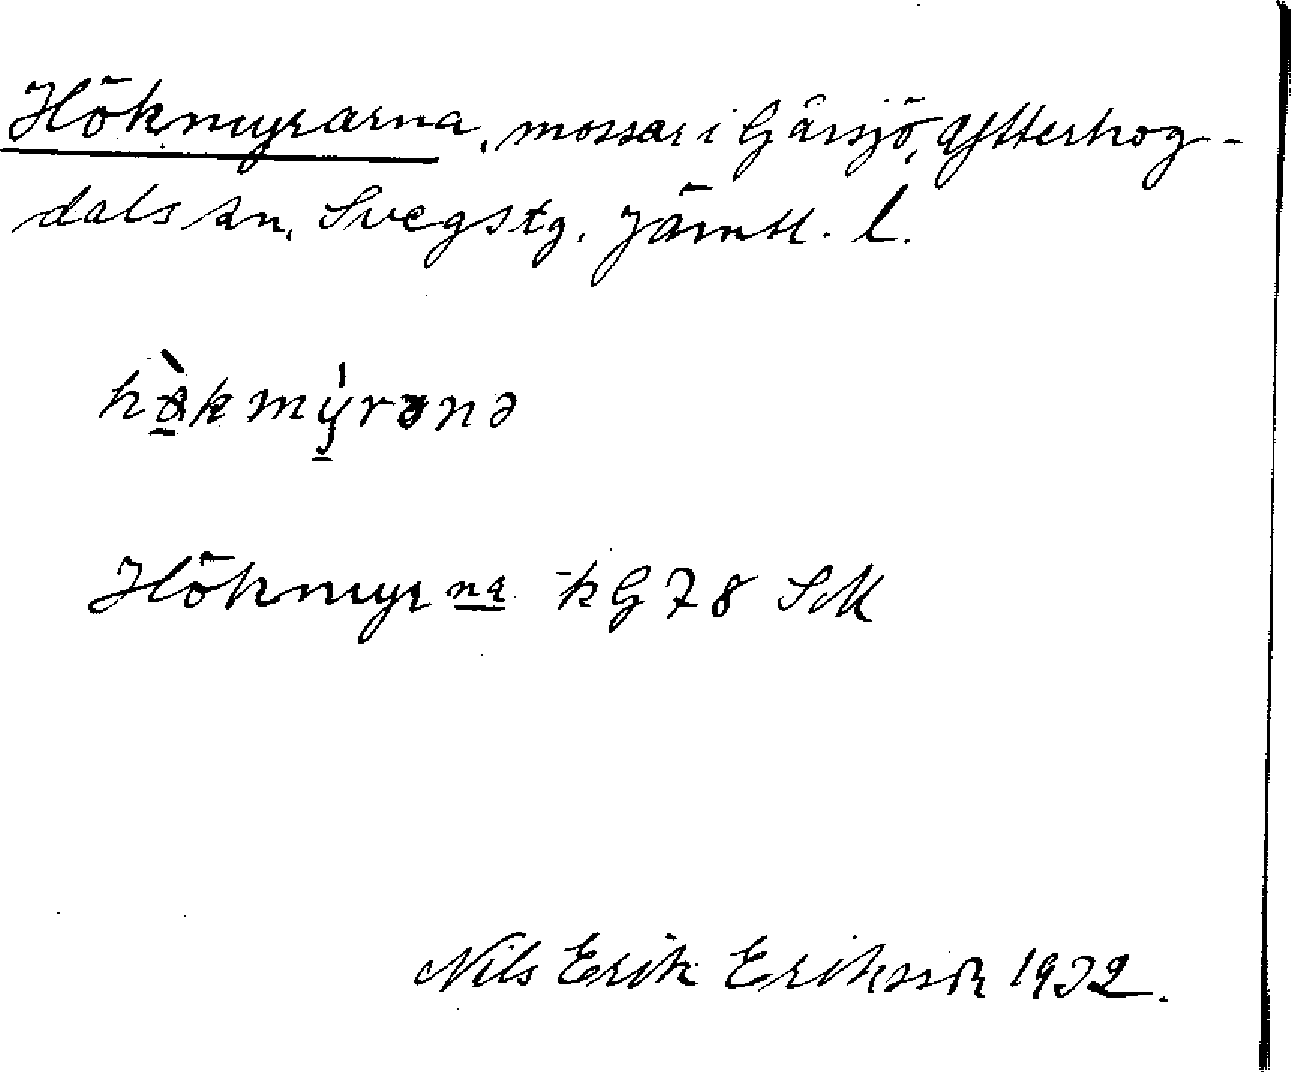 Hökmyrarna, mossar i Gårsjö, Ytterhog-
dals sn, Svegs tg. Jämtl. l.
hö̀kmýrənə
Hökmyrna kG 78 SK
Nils Erik Eriksson 1932.